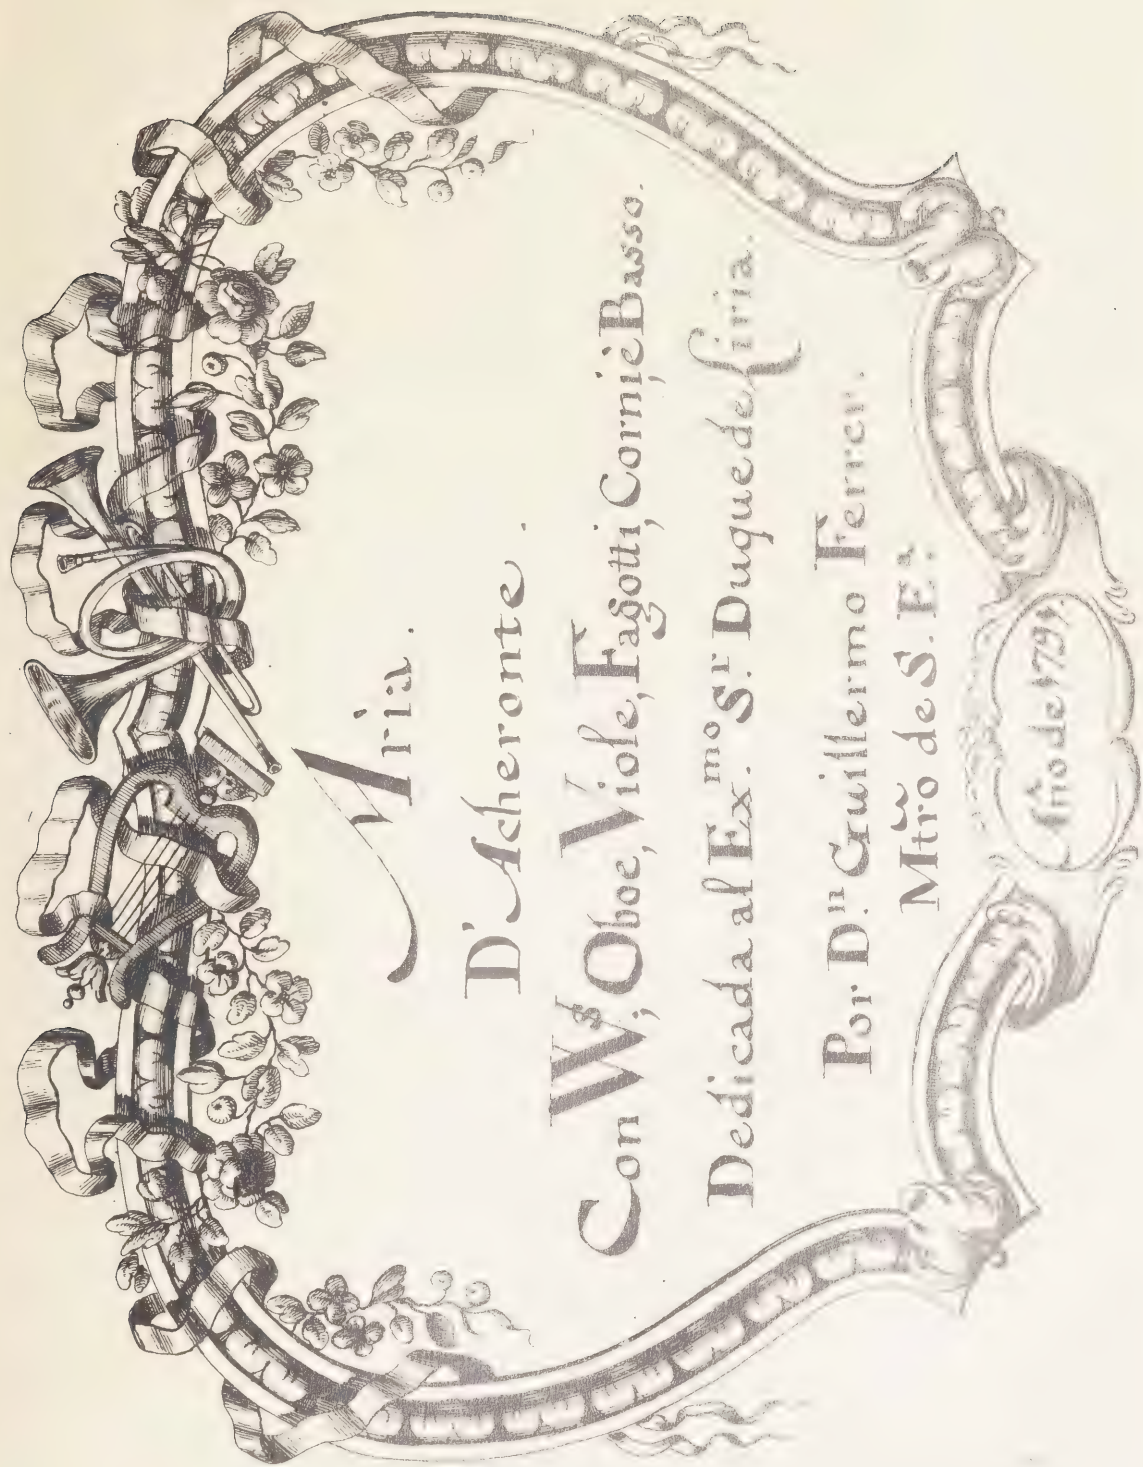 Aria.
D'Acheronte.
Con W.ˢ, Oboe, Viole, Fagotti, Corni, è Basso.
Dedicada al Ex.ᵐᵒ S.ʳ Duque de Liria.
Por D.ⁿ Guillermo Ferrer.
Mtro de S. E.ᵃ
Año de 1791